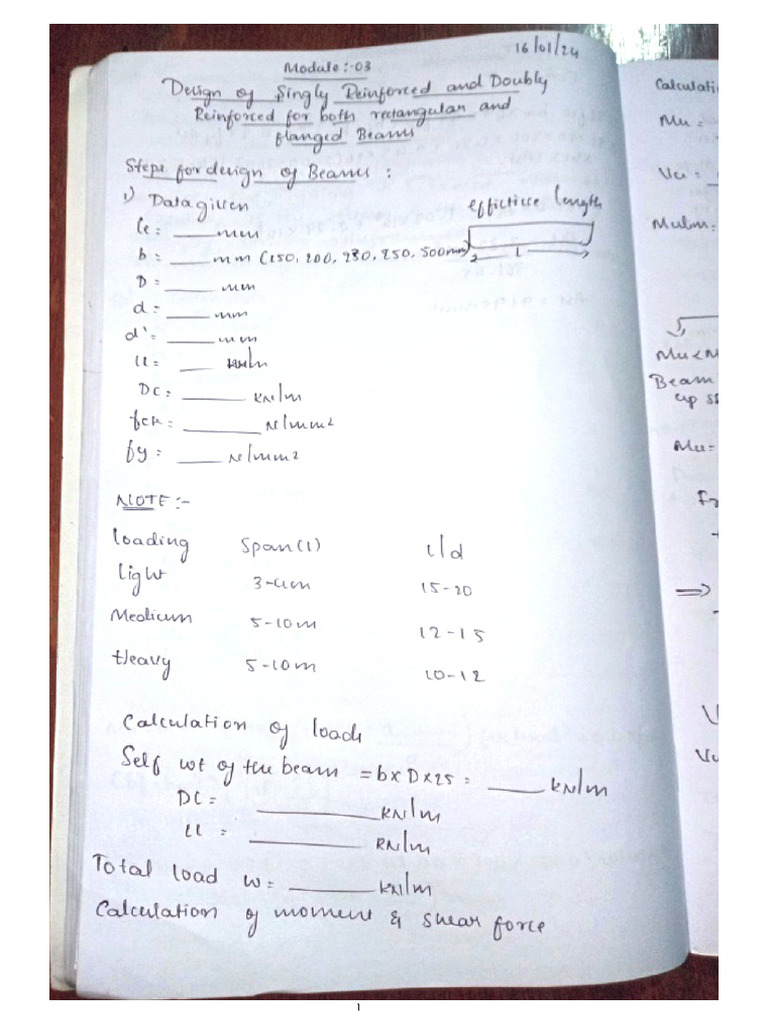 16/01/24
Module:-03
Design of Singly Reinforced and Doubly
Reinforced for both rectangular and
flanged Beams
Steps for design of Beams :
1) Data given
le = ___ mm
effictive length
b = ___ mm (150, 200, 230, 250, 500mm)
L
D = ___ mm
d = ___ mm
d' = ___ mm
LL = ___ kN/m
DL = ___ kN/m
fck = ___ N/mm2
fy = ___ N/mm2
NOTE :-
loading Span(l) l/d
light 3-4m 15-20
Medium 5-10m 12-15
Heavy 5-10m 10-12
Calculation of loads
Self wt of the beam = b x D x 25 = ___ kN/m
DL = ___ kN/m
LL = ___ kN/m
Total load w = ___ kN/m
Calculation of moment & shear force
Calculati
Mu =
Vu =
Mulm=
Mu < M
Beam
up s
Mu =
⇒
Vu
1